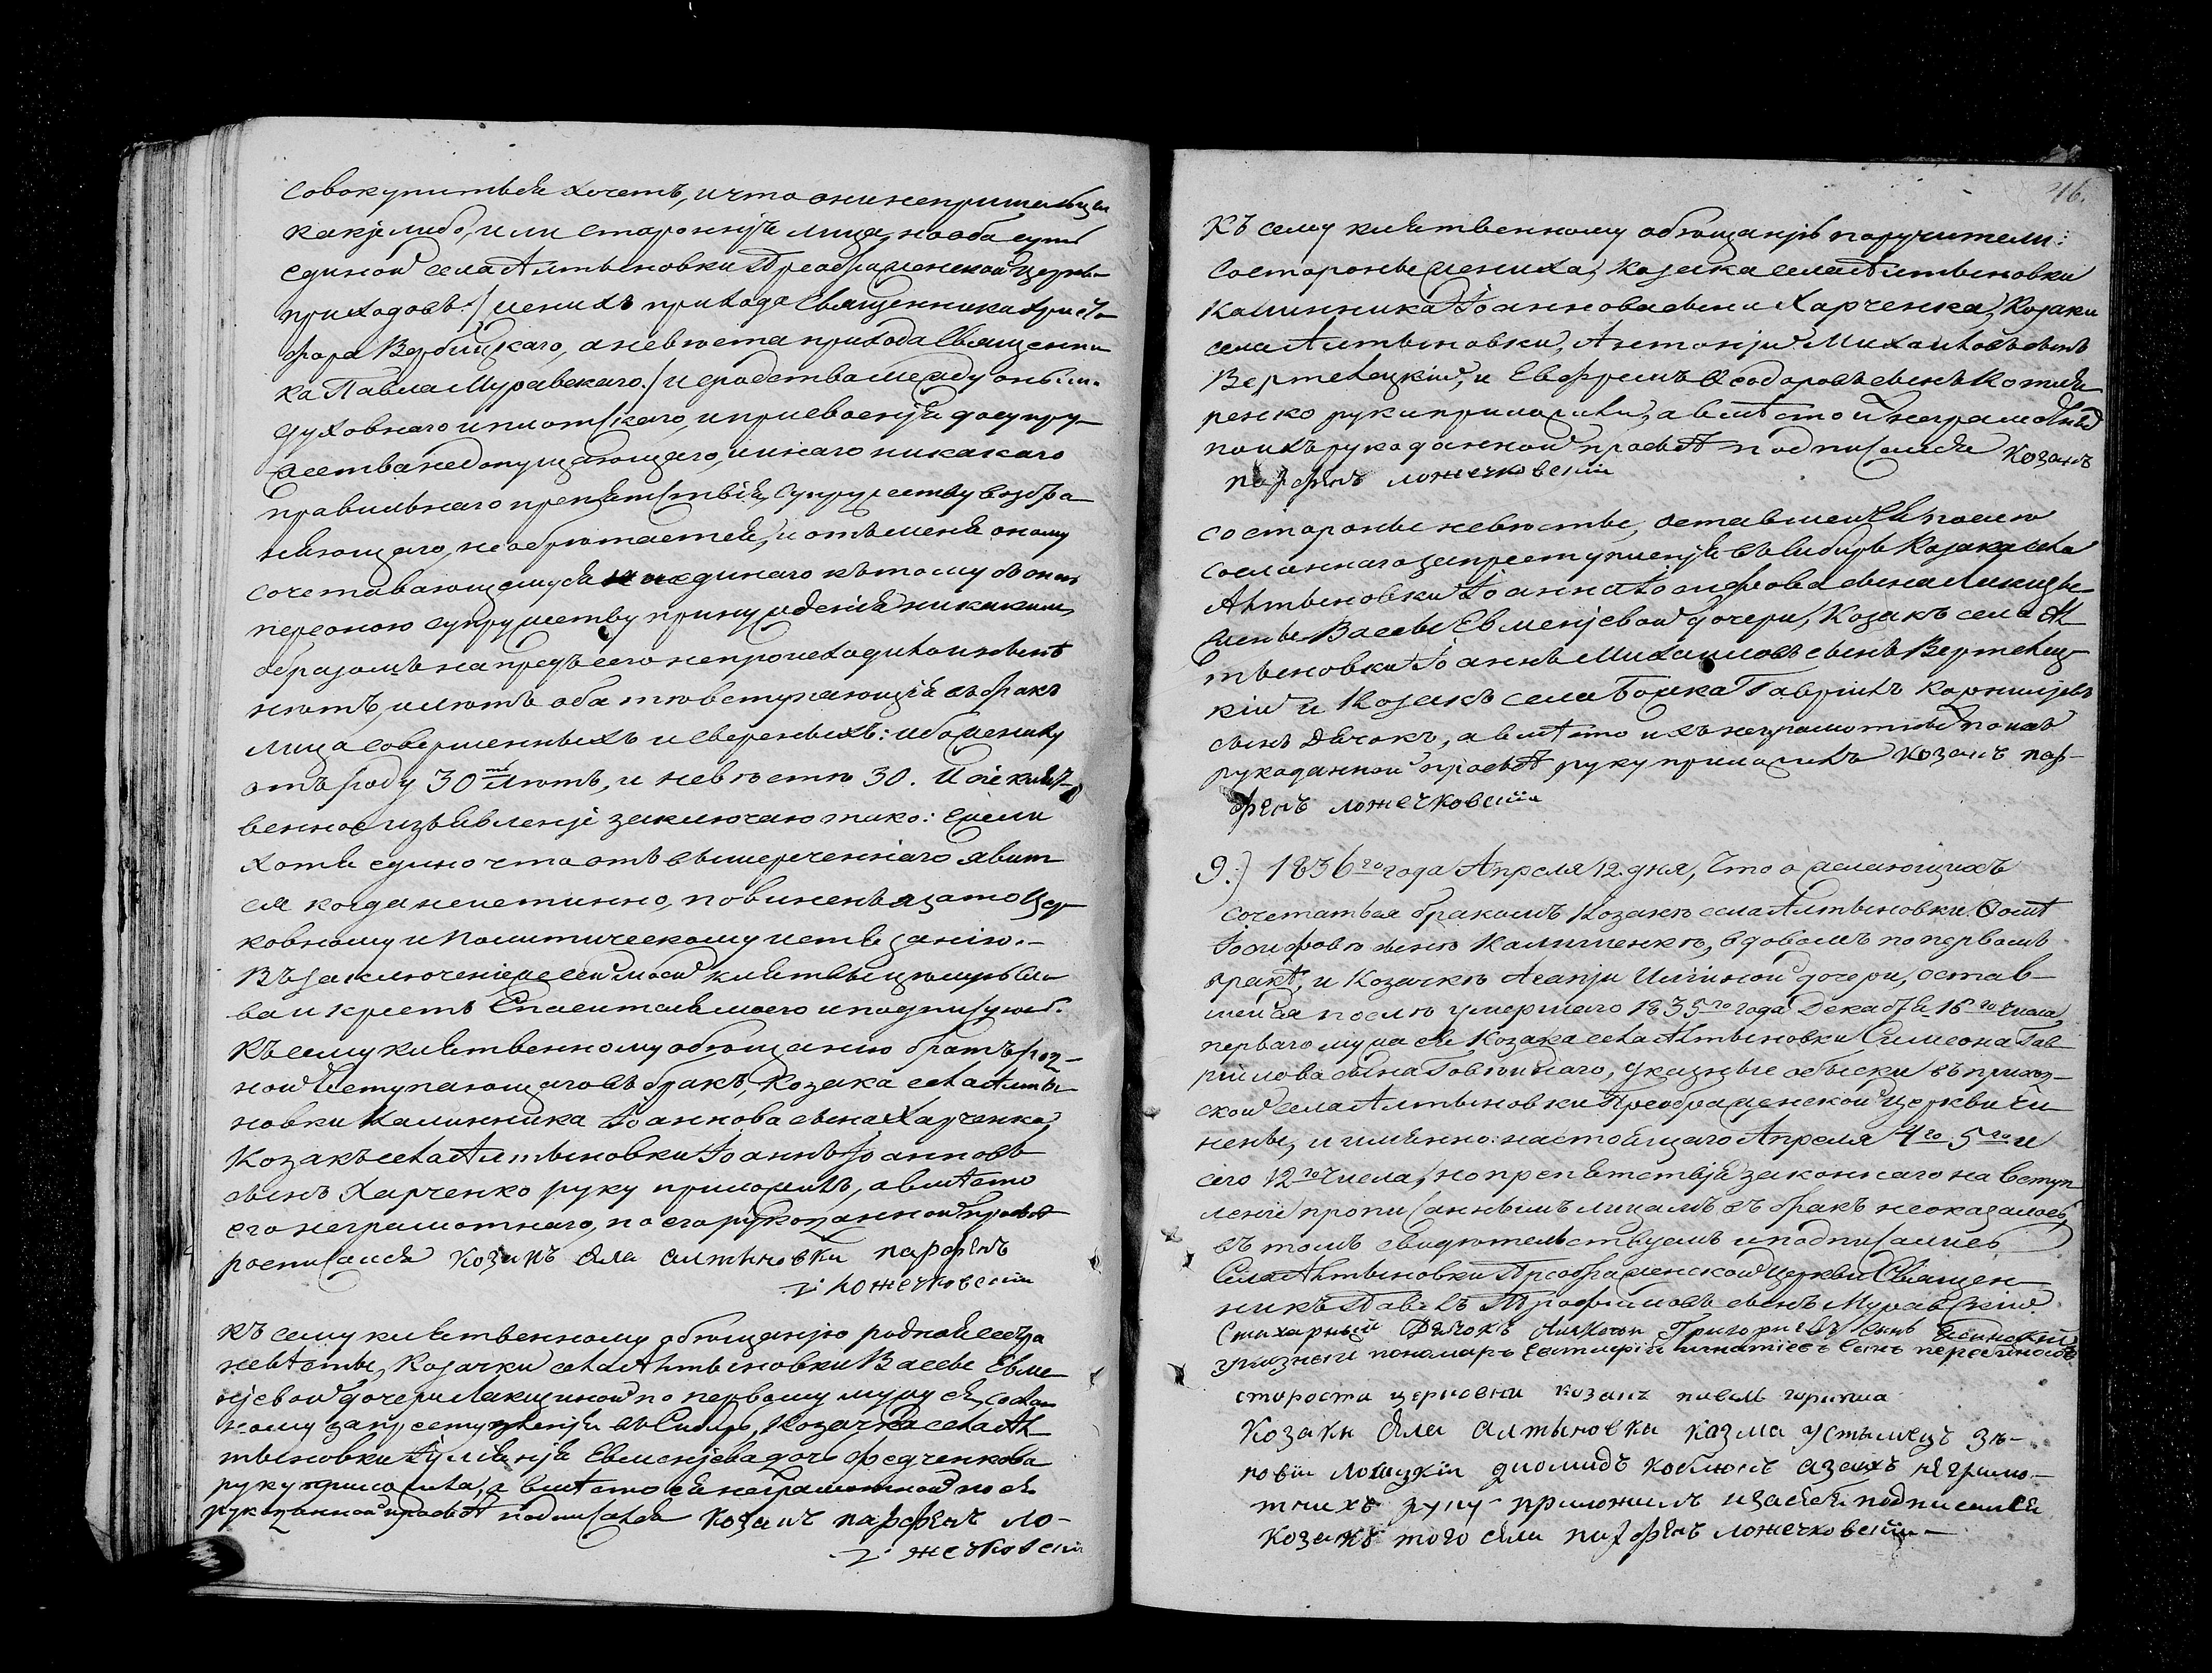 совокупитьсѧ хочетъ, и что они непришельцы
какје либо, или сторонніѧ лица, но оба суть
единой села Алтыновки Преображенской церкви
приходовъ /: женихъ прихода Священника Христо
фора Вербицкаго, а невѣста прихода Священни
ка Павла Муравскаго :/ и сродства между оными
духовнаго и плотскаго, и присвоенјѧ до супру
жества недопущающаго, и инаго никакаго
правильнаго препѧтствіѧ, супружеству возбра
нѧющаго, не обрѣтаетсѧ, и отъ менѧ оному
сочетавающемусѧ и единаго къ тому с оною
персоною супружеству принужденіѧ никакимъ
образомъ напредъ сего непроисходило и нынѣ
нѣтъ, имѣютъ оба тѣ вступающіѧ въ бракъ
лица совершенныхъ и сверсныхъ: ибо жениху
отъ роду 30ть лѣтъ, и невѣстѣ 30. И сіе клѧт
венное изъѧвленје заключаю тако: Ежели
хотѧ едино что отъ вышереченнаго явит
ся когда неистинно, повиненъ я за то цер
ковному и Политическому истѧзанію.-
Въ заключеніе же сей моей клѧтвы цѣлую Сло
ва и крестъ Спаситѧлѧ моего и подписуюсь.
Къ сему клѧтвенному обѣщанію братъ род
ной вступающаго въ бракъ, козака села Алты
новки Калинника Іоаннова сына Харченка,
Козакъ села Алтыновки Іоаннъ Іоанновъ
сынъ Харченко руку приложилъ, а вмѣсто
его неграмотнаго, по его рукоданной прозьбѣ
росписалсѧ козакъ села алтиновки парфѣнъ
ложечковскій
Къ сему клѧтвенному обѣщанјю роднаѧ сестра
невѣсты, Козачки села Алтыновки Вассы Евме
нјевой дочери Лакизиной по первому мужу еѧ, сослан
ному за преступленјѧ въ Сибирь, Козачка села Ал
тыновки Евменјева дочь Федченкова
руку приложила, а вмѣсто еѧ неграмотной по еѧ
рукоданной прозьбѣ подписалсѧ козакъ парфѣнъ ло-
жечковскій
46.
Къ сему клѧтвенному обѣщанјю поручители:
Со стороны жениха, Козака села Алтыновки
Калинника Іоаннова сына Харченка, Козаки
села Алтыновки, Антонјй Михаиловъ сынъ
Вертелецкій, и Евфремъ Ѳеодоровъ сынъ
ренко руки приложили, а вмѣсто ихъ неграмотныхъ
по ихъ рукоданной прозьбѣ подписалсѧ козакъ
парфѣнъ ложечковскій
Со стороны невѣсты, оставшейсѧ послѣ
сосланнаго за преступленјѧ въ Сибирь Козака села
Алтыновки Іоанна Іосифова сына Лакизы
жены Вассы Евменјевой дочери, Козакъ села Ал
тыновки Іоаннъ Михаиловъ сынъ Вертелец
кій и Козакъ села Гавріилъ Корнилјевъ
сынъ Дѧчокъ, а вмѣсто ихъ неграмотныхъ по ихъ
рукоданной прозьбѣ руку приложилъ козакъ пар-
фѣнъ ложечковскій
9.) 1836го года Апрелѧ 12. дня, Что о желающихъ
сочетатьсѧ бракомъ Козакѣ села Алтыновки Ѳомѣ
Іосифовѣ сынѣ Калишенкѣ, вдовомъ по первомъ
бракѣ, и Козачкѣ Агапји Иліиной дочери, остав
шейсѧ послѣ умершаго 1835го года Декабрѧ 16го числа,
перваго мужа еѧ Козака села Алтыновки Симеона Гав
ріилова сына, указные обыски въ приход
ской села Алтыновки Преображенской церкви чи
нены, и имѧнно: настоѧщаго Апрелѧ 4го 5го и
сего 12го числа, но препѧтствјѧ законнаго на вступ
леніе прописаннымъ лицамъ въ бракъ неоказалось,
въ томъ свидѣтельствуемъ и подписались
Села Алтыновки Преображенской церкви Священ
никъ Павелъ Трофимовъ сынъ Муравскій.
Стихарный Дѧчокъ Григоріевъ сынъ
указный пономарь игнатіевъ сынъ
староста церковни козакъ павелъ
козаки села алтыновки казма устымецъ зѣ-
новій лохицкій диомидъ коблюкъ а заихъ неграмо-
тнихъ руку приложилъ и засебѧ подписалсѧ
козакъ того села парфѣнъ ложечковскій